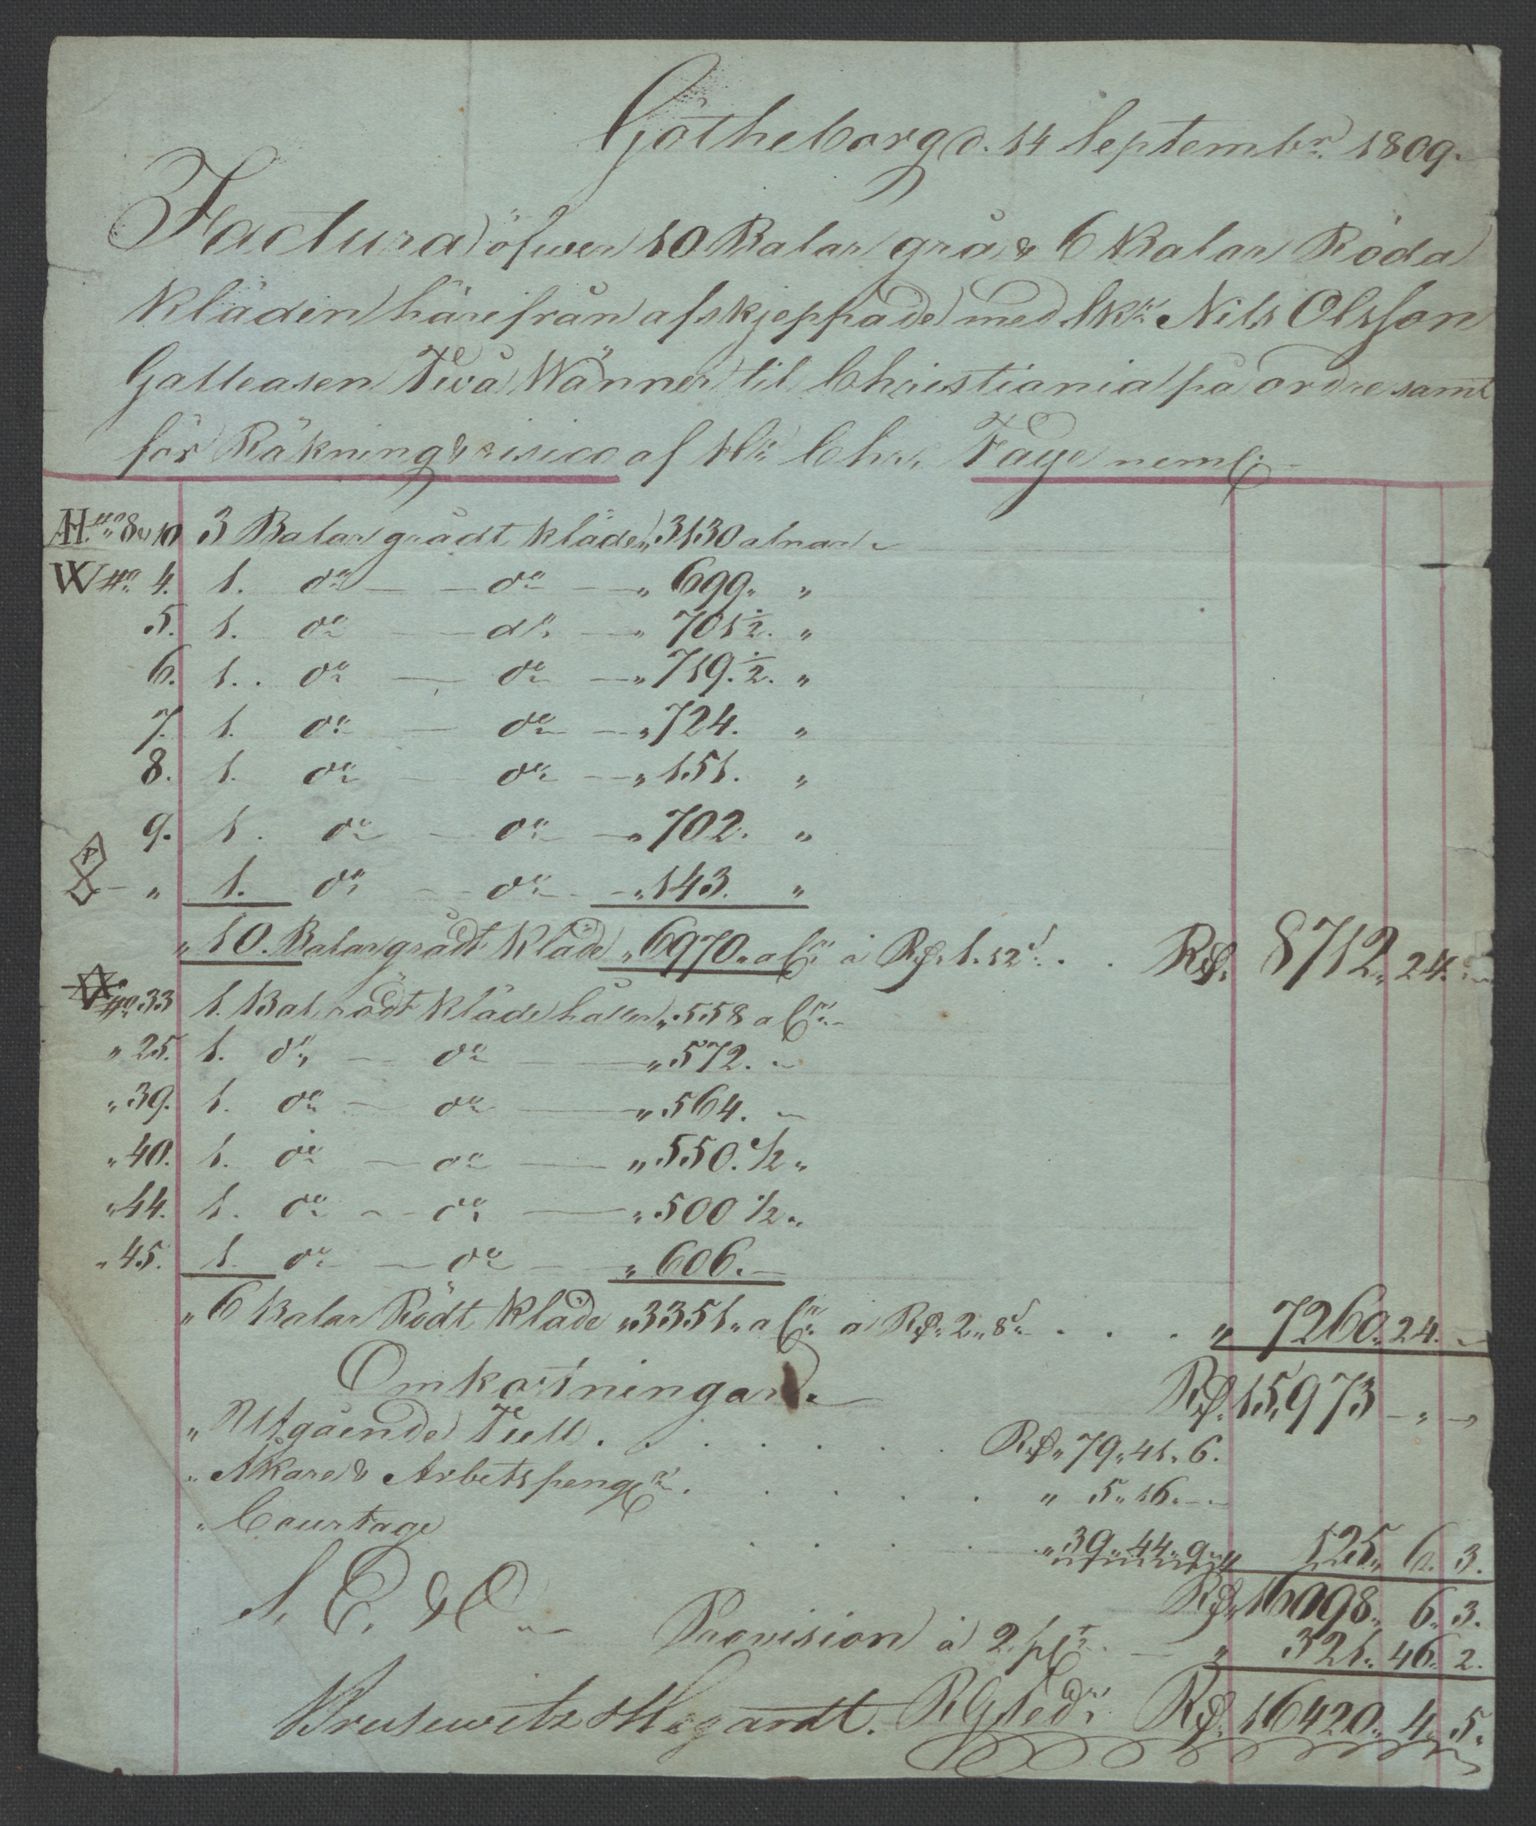 Götheborg d. 14 Septembr. 1809.
Factura öfwer 10 Balar grå & 6 Balar Röda
kläden härifrån afskjeppade med Skr. Nils Olsson
Galleasen Twå Wänner til Christiania på ordre samt
för Räkning & risico af Hr. Chr. Faye neml.
AH. No. 8 à 10 3 Balar grådt kläde „ 3130 alnar
W No. 4. 1. do — do — „ 699. „
5. 1. do — do — „ 701 1/2. „
6. 1. do — do — „ 719. 1/2. „
7. 1. do — do — „ 724. „
8. 1. do — do — „ 151. „
9. 1. do — do — „ 702. „
„ 1. do — do — „ 143. „
„ 10. Balar grådt Kläde „ 6970. aln à Rd. 1. 12 s. . . Rd. 8712. 24. „
No. 33 1. Bal rödt kläde håller „ 558 aln
„ 25. 1. do — do — „ 572. —
„ 39. 1. do — do — „ 564. —
„ 40. 1. do — do — „ 550. 1/2 „
„ 44. 1. do — do — „ 500 1/2 „
„ 45. 1. do — do — „ 606. —
„ 6 Balar Rödt Kläde „ 3351 „ aln à Rd. 2 „ 8 s. . . . „ 7260. 24. —
Omkostningar. Rd. 15,973 — „ —
„ Utgående Tull . . . . . . . Rd. 79. 41. 6.
„ Åkare & Arbetspengr. . . . . . „ 5. 16. —
„ Courtage . . . . „ 39. 44. 9. „ 125. 6. 3.
S. E. & O. Rd. 16098. 6. 3.
Provision à 2 pCt. — „ 321. 46. 2.
Brusewitz & Hegardt. RGSedr. Rd. 16420. 4. 5.